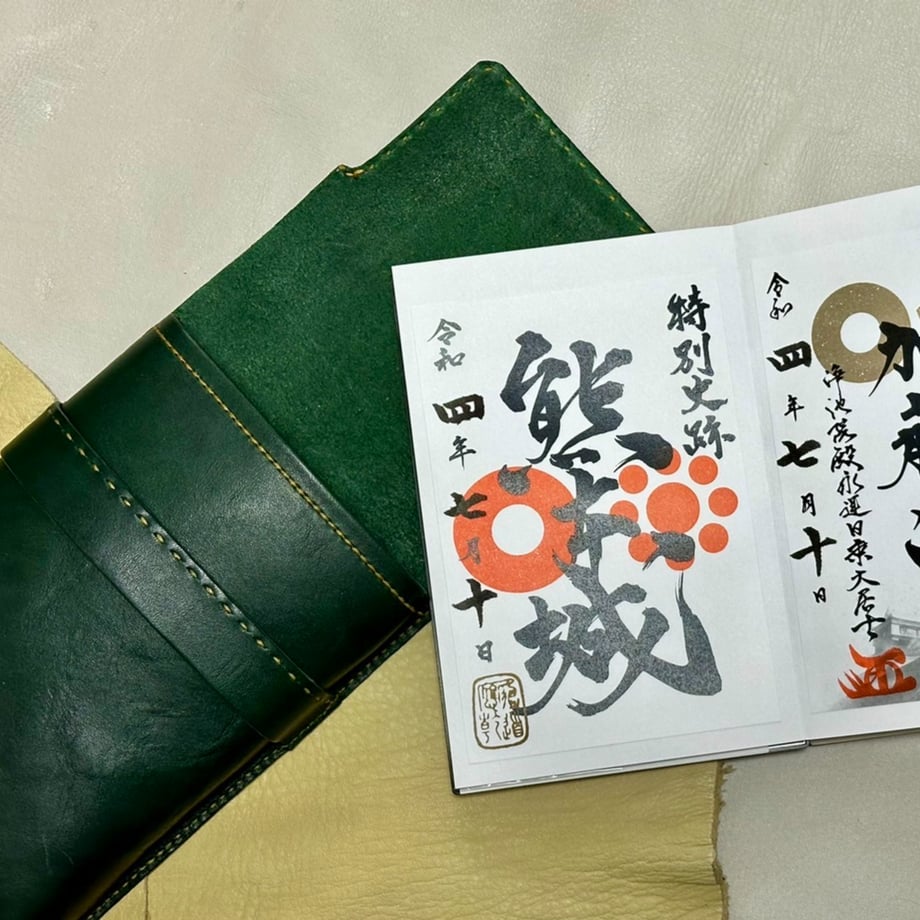 特別史跡
熊本城
令和四年七月十日
加藤
浄池院殿永運日乗大居士
令和四年七月十日